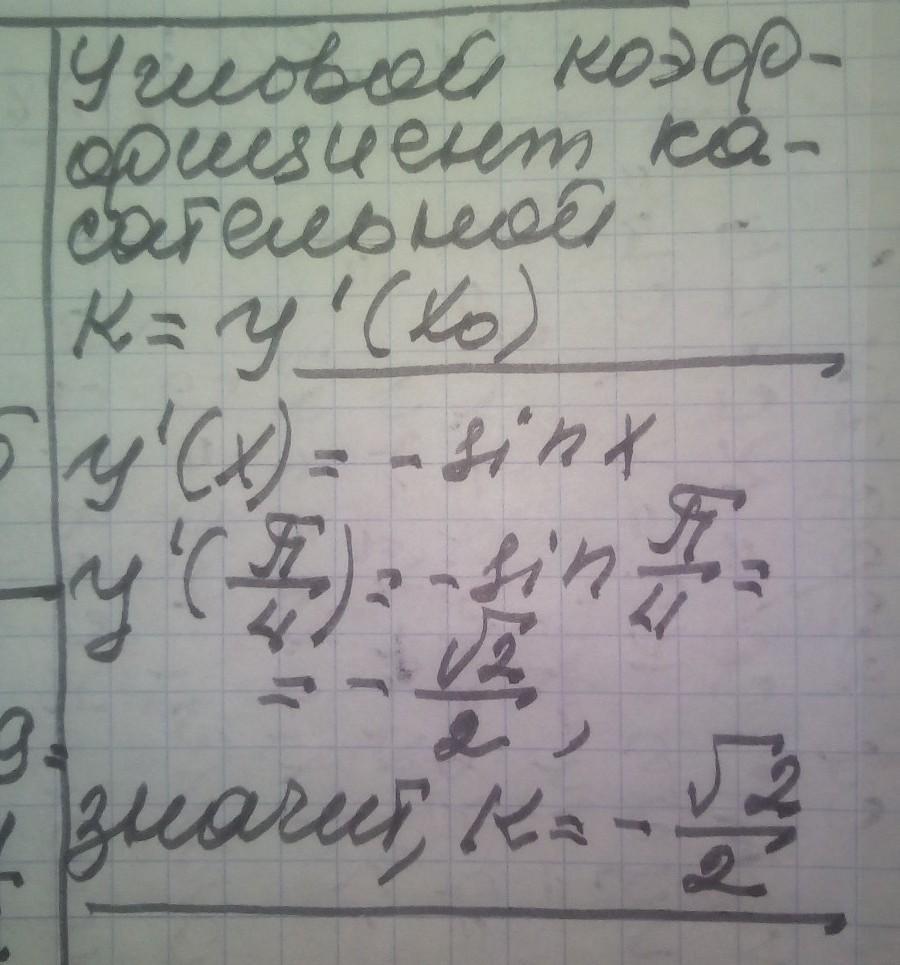 Угловой коэф-
фициент ка-
сательной
K = y'(x₀)
y'(x) = - sin x
y'(π/4) = - sin π/4 =
= - √2/2 ,
значит, K = - √2/2